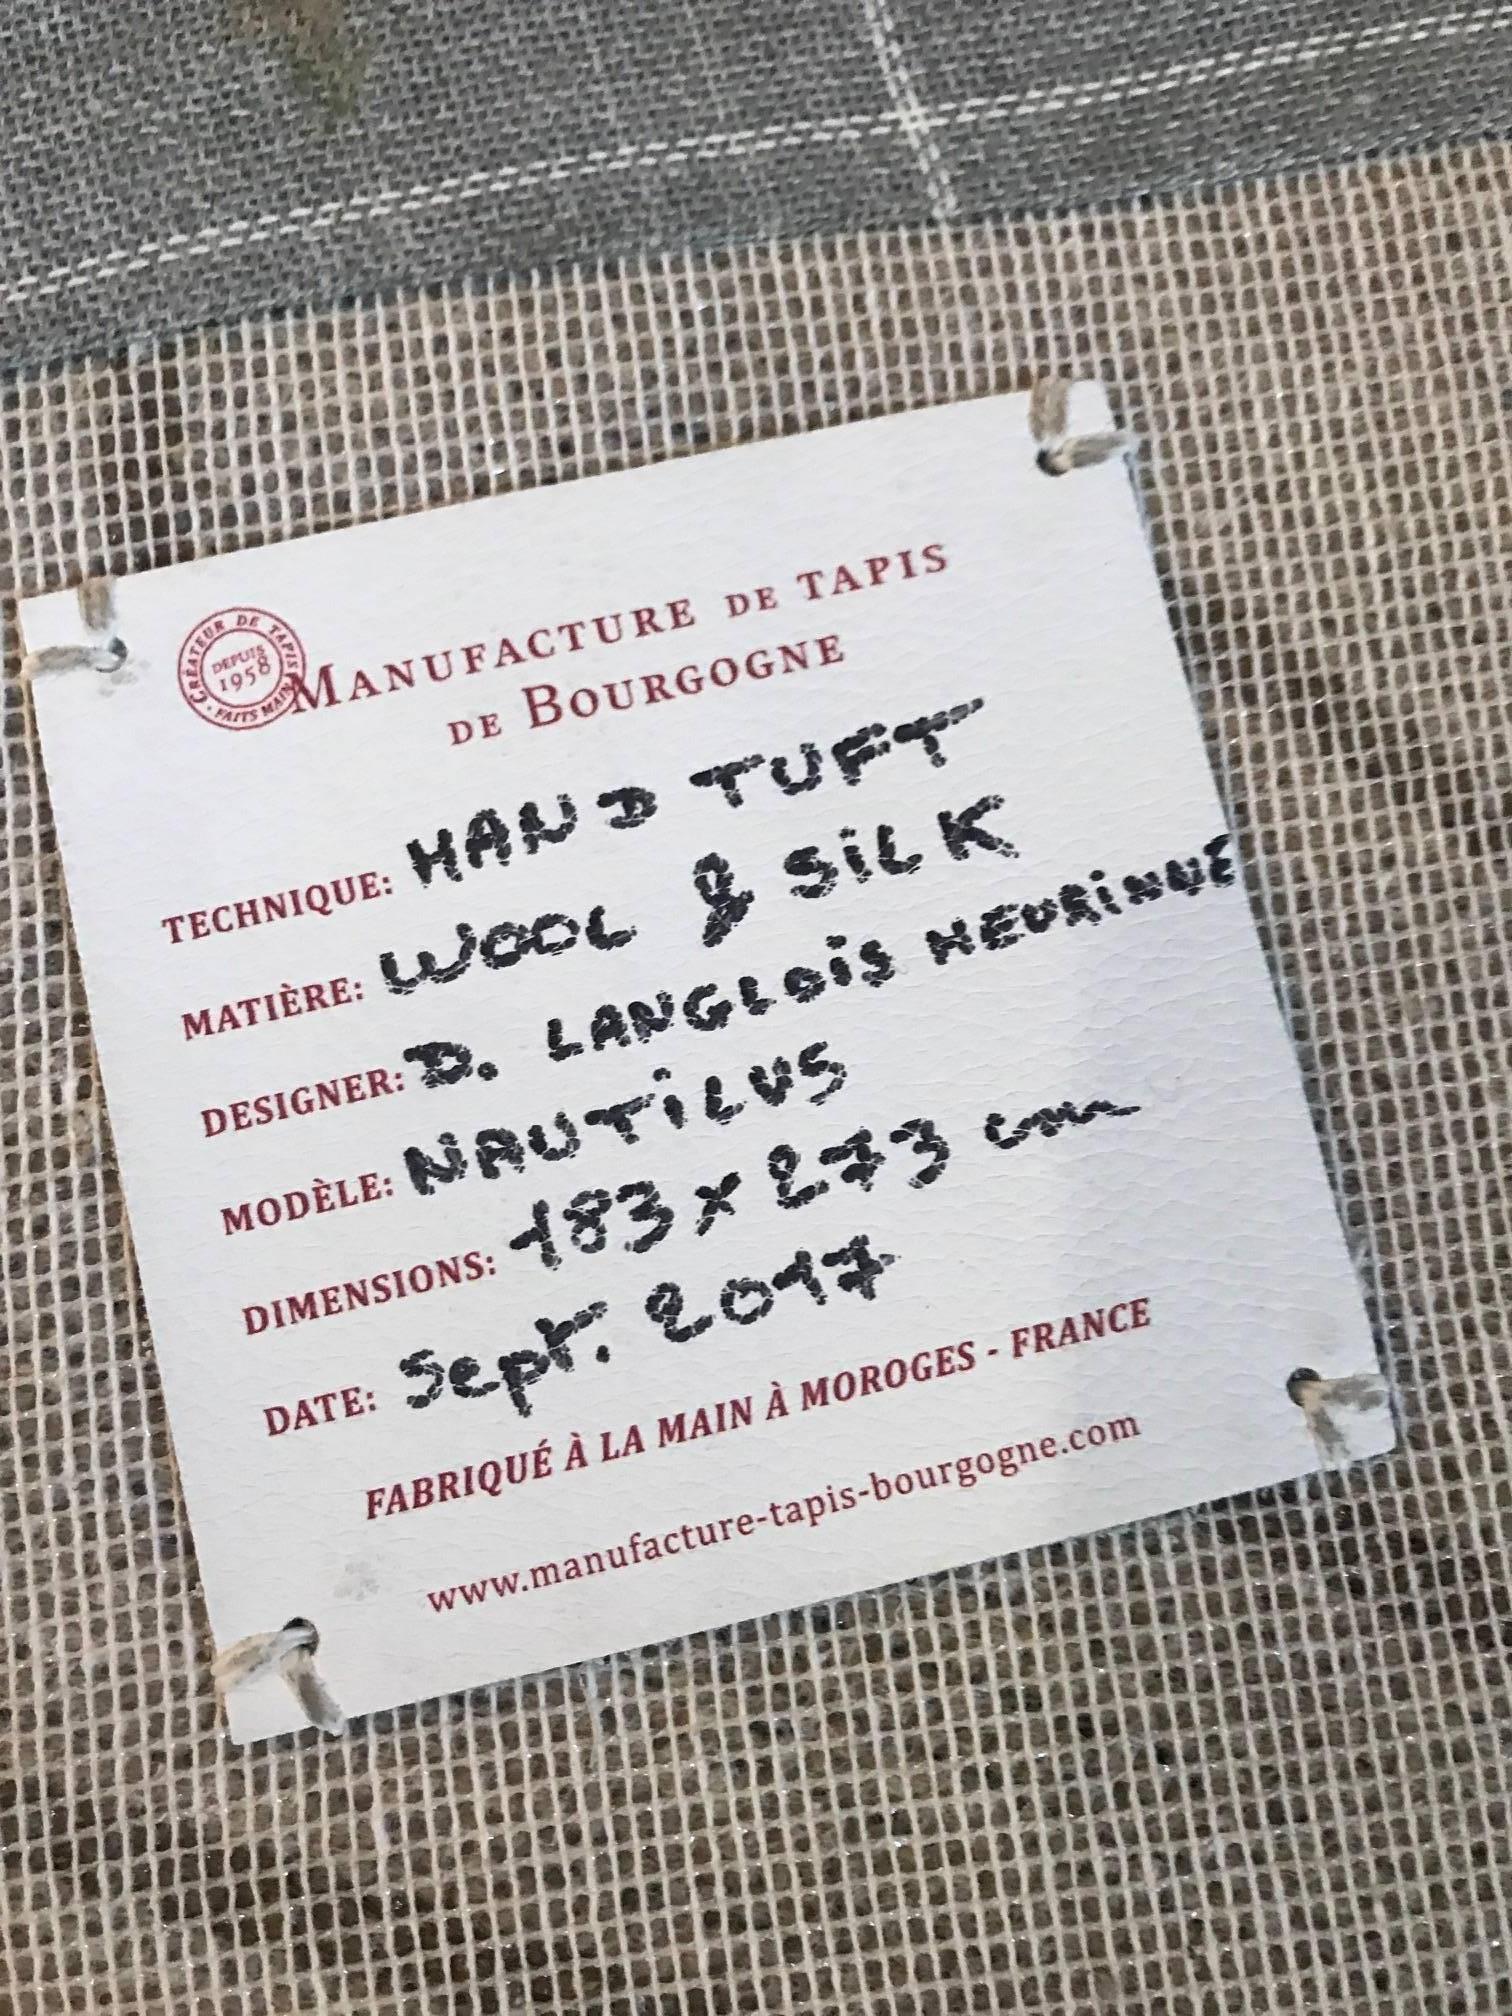 CRÉATEUR DE TAPIS
DEPUIS
1958
FAITS MAIN
MANUFACTURE DE TAPIS
DE BOURGOGNE
TECHNIQUE: HAND TUFT
MATIÈRE: WOOL & SiLK
DESIGNER: D. LANGLOiS MEURiNNE
MODÈLE: NAUTiLUS
DIMENSIONS: 183 x 273 cm
DATE: Sept. 2017
FABRIQUÉ À LA MAIN À MOROGES - FRANCE
www.manufacture-tapis-bourgogne.com